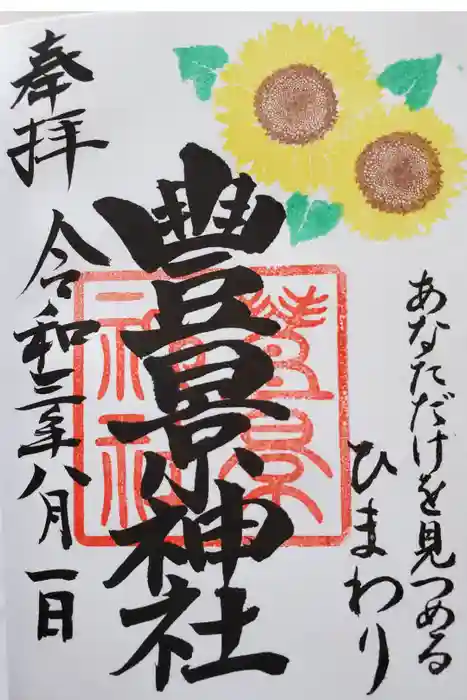 あなただけを見つめる
ひまわり
豊景神社
豊景
神社
奉拝
令和三年八月一日